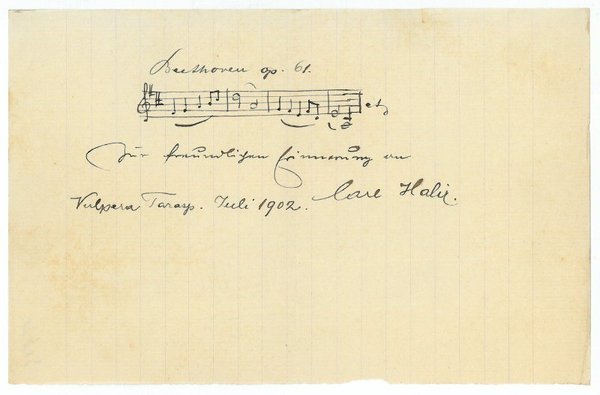 Beethoven op. 61.
etc
Zur freundlichen Erinnerung an
Vulpera Tarasp. Juli 1902. Carl Halir.